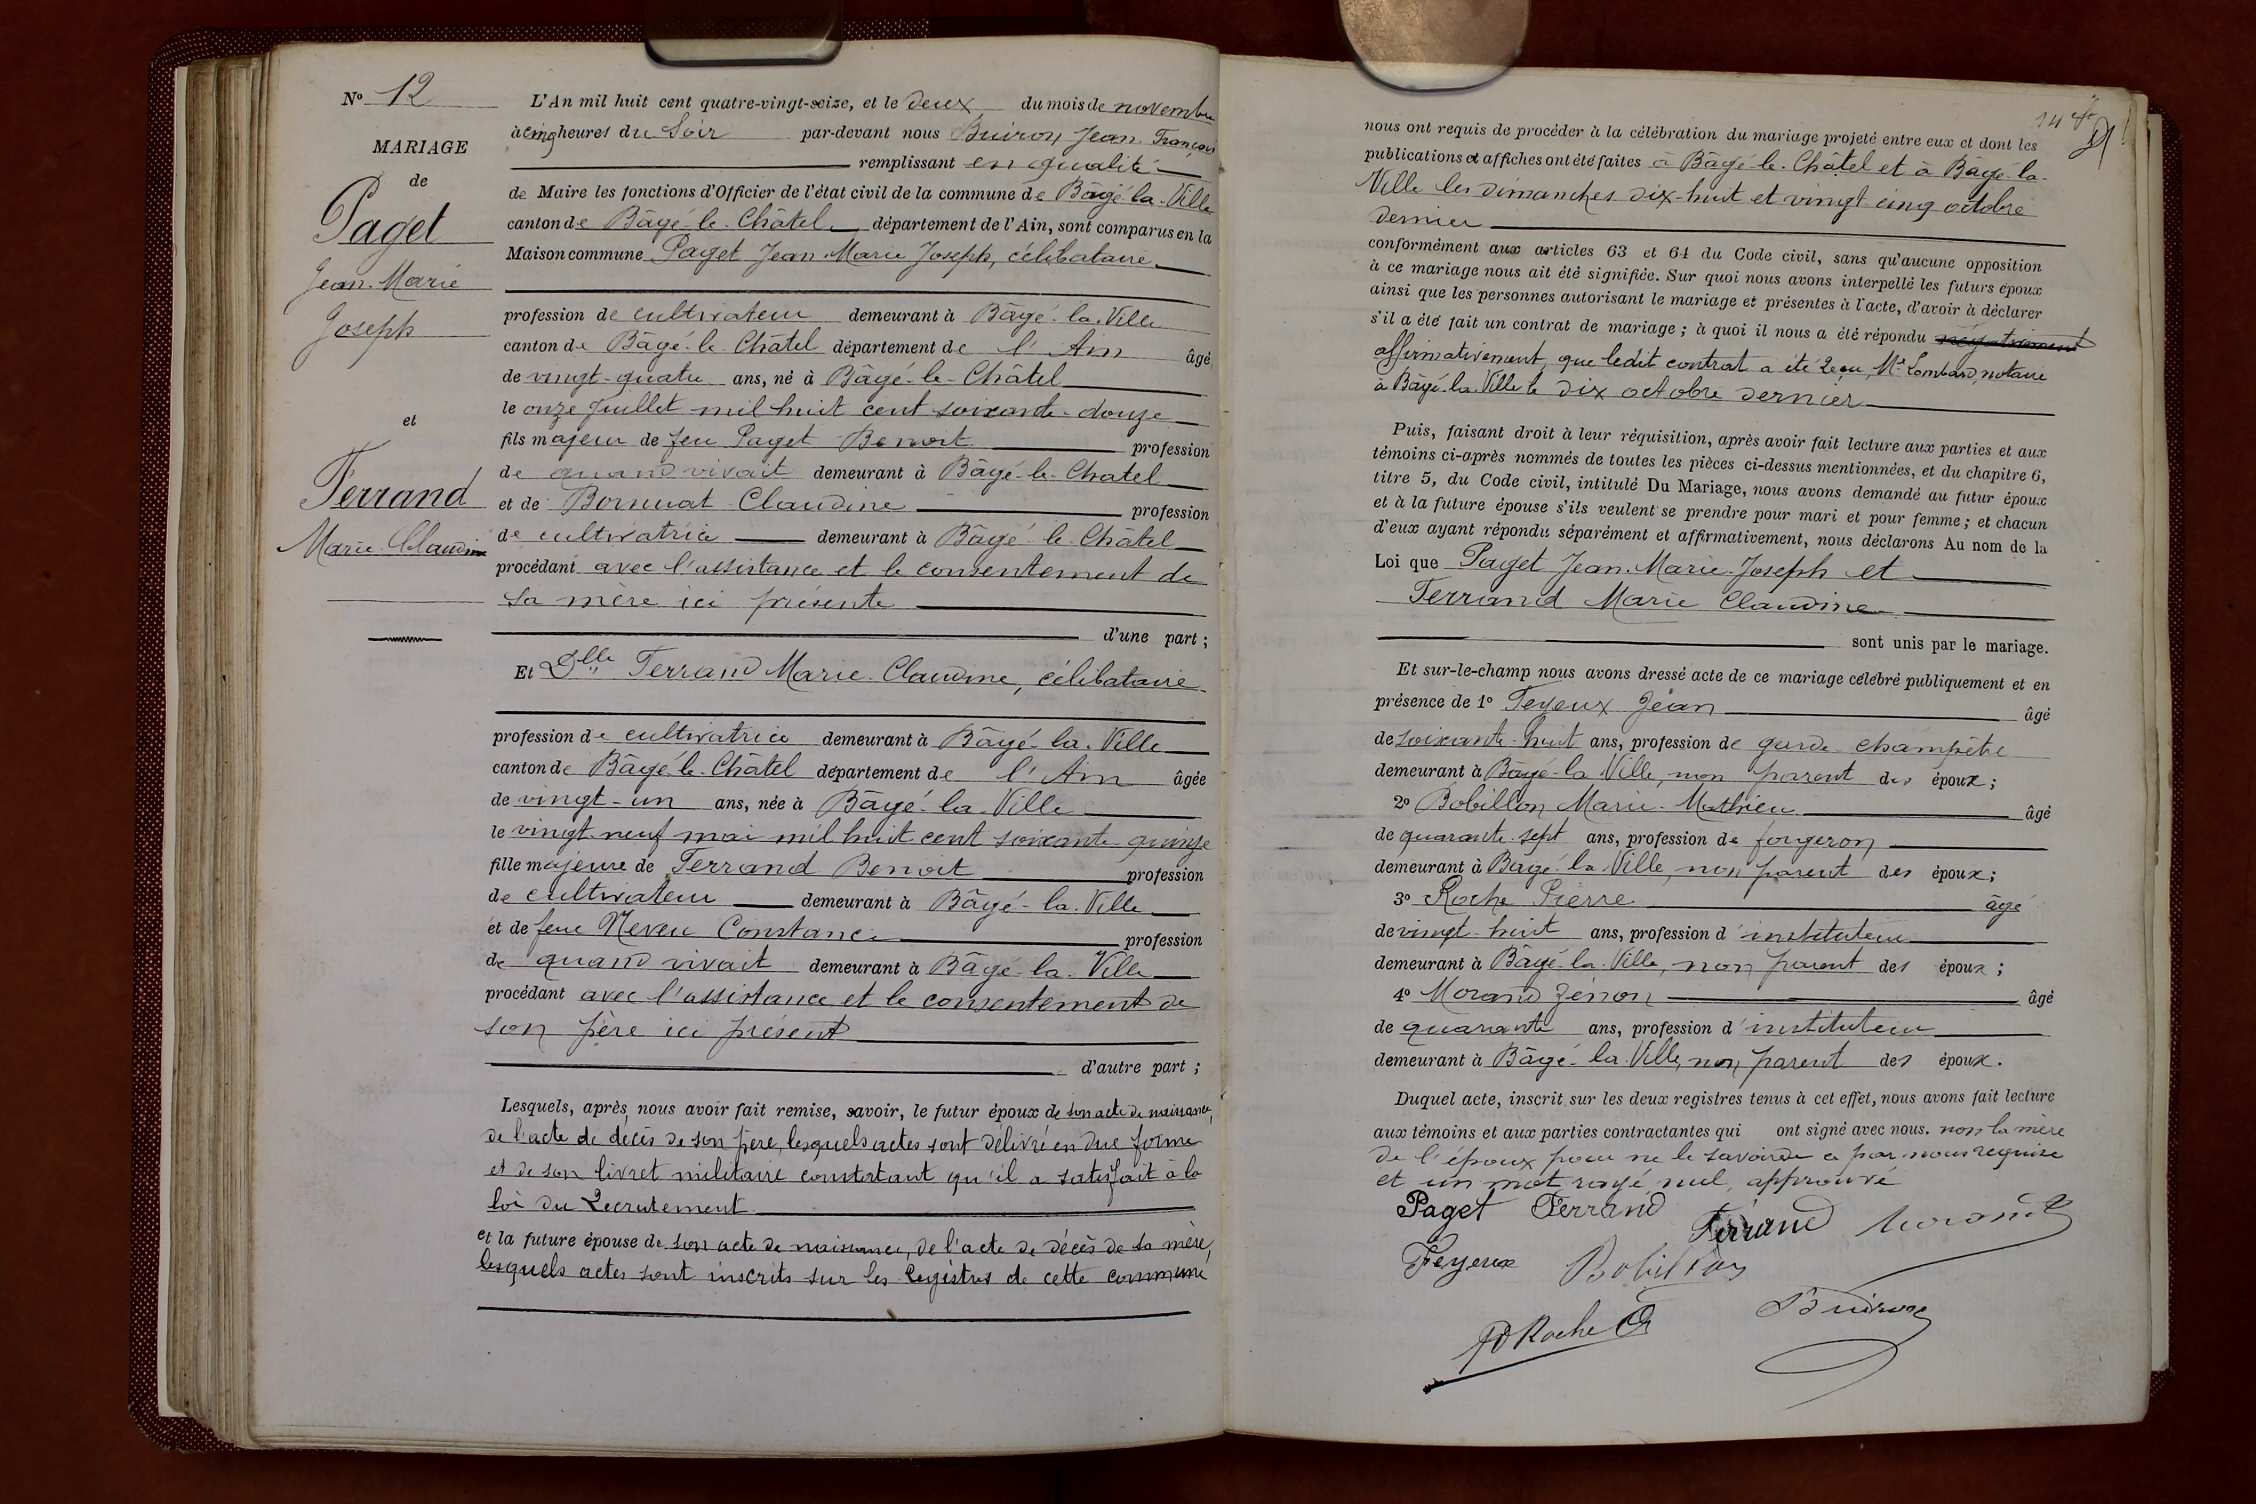 N° 12
MARIAGE
de
Paget
Jean-Marie
Joseph
et
Ferrand
Marie-Claudine
L'An mil huit cent quatre-vingt-seize, et le deux du mois de novembre
à cinq heures du soir par-devant nous Buiron Jean-François
remplissant en qualité
de Maire les fonctions d'Officier de l'état civil de la commune de Bâgé-la-Ville
canton de Bâgé-le-Châtel département de l'Ain, sont comparus en la
Maison commune Paget Jean-Marie Joseph, célibataire
profession de cultivateur demeurant à Bâgé-la-Ville
canton de Bâgé-le-Châtel département de l'Ain âgé
de vingt-quatre ans, né à Bâgé-le-Châtel
le onze Juillet mil huit cent soixante-douze
fils majeur de feu Paget Benoit profession
de quand vivait demeurant à Bâgé-le-Chatel
et de Bornuat Claudine profession
de cultivatrice demeurant à Bâgé-le-Châtel
procédant avec l'assistance et le consentement de
sa mère ici présente
d'une part;
Et Dlle Ferrand Marie-Claudine, célibataire
profession de cultivatrice demeurant à Bâgé-la-Ville
canton de Bâgé-le-Châtel département de l'Ain âgée
de vingt-un ans, née à Bâgé-la-Ville
le vingt-neuf mai mil huit cent soixante-quinze
fille majeure de Ferrand Benoit profession
de cultivateur demeurant à Bâgé-la-Ville
et de feue Neveu Constance profession
de quand vivait demeurant à Bâgé-la-Ville
procédant avec l'assistance et le consentement de
son père ici présent
d'autre part;
Lesquels, après nous avoir fait remise, savoir, le futur époux de son acte de naissance,
de l'acte de décès de son père, lesquels actes sont délivré en due forme
et de son livret militaire constatant qu'il a satisfait à la
loi du Recrutement
et la future épouse de son acte de naissance, de l'acte de décès de sa mère,
lesquels actes sont inscrits sur les Registres de cette commune
nous ont requis de procéder à la célébration du mariage projeté entre eux et dont les
publications et affiches ont été faites à Bâgé-le-Châtel et à Bâgé-la-
Ville les dimanches dix-huit et vingt cinq octobre
dernier
conformément aux articles 63 et 64 du Code civil, sans qu'aucune opposition
à ce mariage nous ait été signifiée. Sur quoi nous avons interpellé les futurs époux
ainsi que les personnes autorisant le mariage et présentes à l'acte, d'avoir à déclarer
s'il a été fait un contrat de mariage; à quoi il nous a été répondu négativement
affirmativement, que ledit contrat a été Reçu, Me Lombard, notaire
à Bâgé-la-Ville le dix octobre dernier
Puis, faisant droit à leur réquisition, après avoir fait lecture aux parties et aux
témoins ci-après nommés de toutes les pièces ci-dessus mentionnées, et du chapitre 6,
titre 5, du Code civil, intitulé Du Mariage, nous avons demandé au futur époux
et à la future épouse s'ils veulent se prendre pour mari et pour femme; et chacun
d'eux ayant répondu séparément et affirmativement, nous déclarons Au nom de la
Loi que Paget Jean-Marie-Joseph et
Ferrand Marie Claudine
sont unis par le mariage.
Et sur-le-champ nous avons dressé acte de ce mariage célébré publiquement et en
présence de 1° Feyeux Jean âgé
de soixante-huit ans, profession de garde-champêtre
demeurant à Bâgé-la-Ville, non parent des époux;
2° Bobillon Marie-Mathieu âgé
de quarante-sept ans, profession de forgeron
demeurant à Bâgé-la-Ville, non parent des époux;
3° Roche Pierre âgé
de vingt-huit ans, profession d'instituteur
demeurant à Bâgé-la-Ville, non parent des époux;
4° Morand Zénon âgé
de quarante ans, profession d'instituteur
demeurant à Bâgé-la-Ville, non parent des époux.
Duquel acte, inscrit sur les deux registres tenus à cet effet, nous avons fait lecture
aux témoins et aux parties contractantes qui ont signé avec nous. non la mère
de l'époux pour ne le savoir de ce par nous requise
et un mot rayé nul, approuvé
Paget Ferrand Ferrand Morand
Feyeux Bobillon
P Roche Buiron